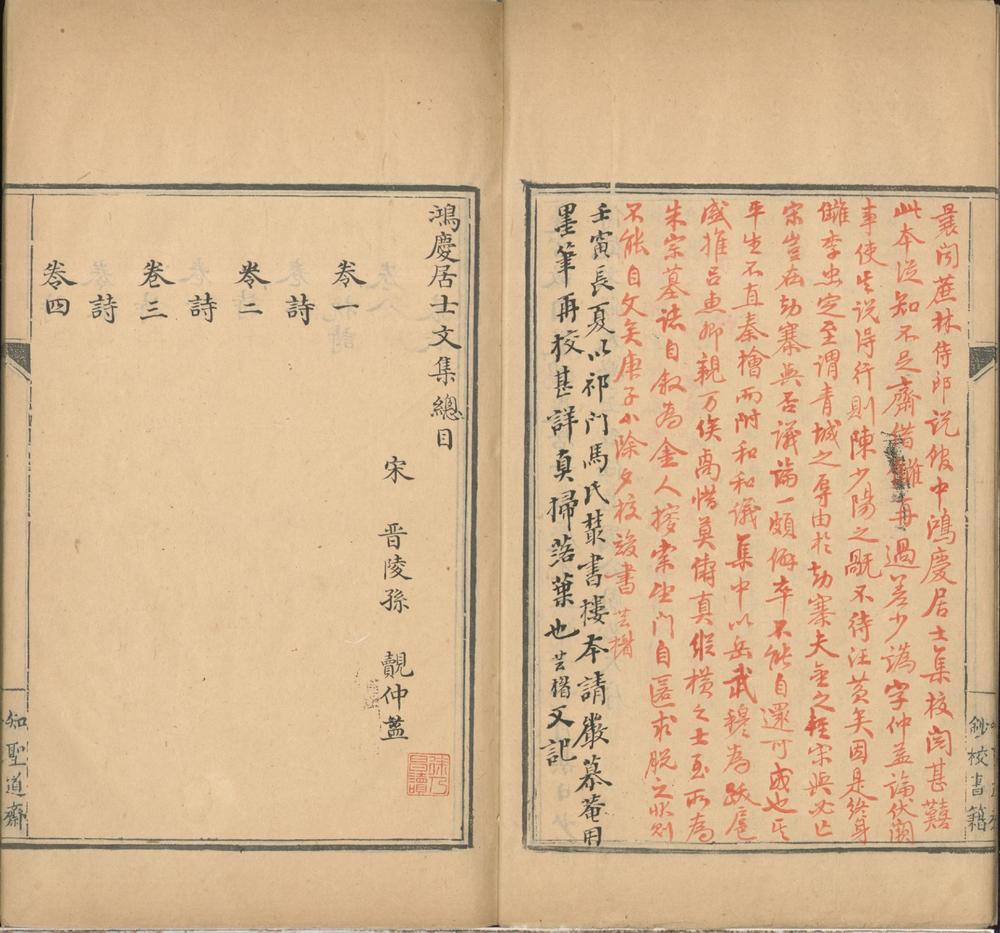 曩聞蔗林侍郎說館中鴻慶居士集校閱甚囏
此本從知不足齋借讎再過差少譌字仲益論伏闕
事使其說得行則陳少陽之斮不待汪黃矣因是終身
讎李忠定至謂青城之辱由於劫寨夫金之輕宋與必亡
宋豈在劫寨與否議論一頗僻卒不能自還可或也其
平生不直秦檜而附和和議集中以岳武穆為跋扈
盛推呂惠卿親万俟卨惜莫儔真縱横之士至所為
朱宗墓誌自敘為金人搒索坐門自匿求脫之狀則
不能自文矣庚子小除夕校竣書 芸楣
壬寅長夏以祁門馬氏叢書樓本請嚴慕菴用
墨筆再校甚詳真掃落葉也 芸楣又記
鈔校書籍
鴻慶居士文集總目
宋 晋陵孫 覿仲益
卷一
詩
卷二
詩
卷三
詩
卷四
知聖道齋